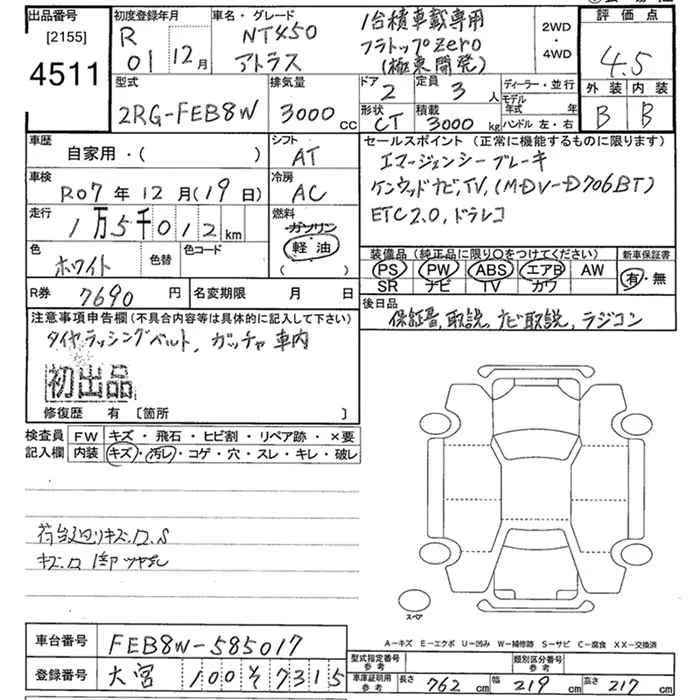 出品番号 初度登録年月 車名・グレード 1台積車載専用 評価点
[2155] R NT450 フラトップzero 2WD
4511 01 12月 アトラス (極東開発) 4WD 4.5
型式 排気量 ドア 定員 ディーラー・並行 外装 内装
2RG-FEB8W 3000 CC 2 3 人 モデル年式 年 B B
形状 積載 ハンドル 左・右
CT 3000 kg
車歴 シフト セールスポイント (正常に機能するものに限ります)
自家用・( ) AT エマージェンシーブレーキ
車検 冷房 ケンウッドナビ,TV,(MDV-D706BT)
R07年12月(19日) AC ETC2.0,ドラレコ
走行 燃料
1万5千012km ガソリン
軽油
( )
色 色替 色コード 装備品(純正品に限り〇をつけてください) 新車保証書
ホワイト PS PW ABS エアB AW 有・無
SR ナビ TV カワ
R券 7690円 名変期限 月 日 後日品
保証書,取説,ナビ取説,ラジコン
注意事項申告欄(不具合内容等は具体的に記入して下さい)
タイヤラッシングベルト,ガッチャ車内
初出品
修復歴 有 [箇所 ]
検査員 FW キズ・飛石・ヒビ割・リペア跡・×要
記入欄 内装 キズ・汚レ・コゲ・穴・スレ・キレ・破レ
スペア
A-キズ E-エクボ U-凹み W-補修跡 S-サビ C-腐食 XX-交換済
車台番号 FEB8W-585017
登録番号 大宮 100 そ 7315
型式指定番号 参考 類別区分番号 参考
車庫証明用 参考 長さ 762 cm 幅 219 cm 高さ 217 cm